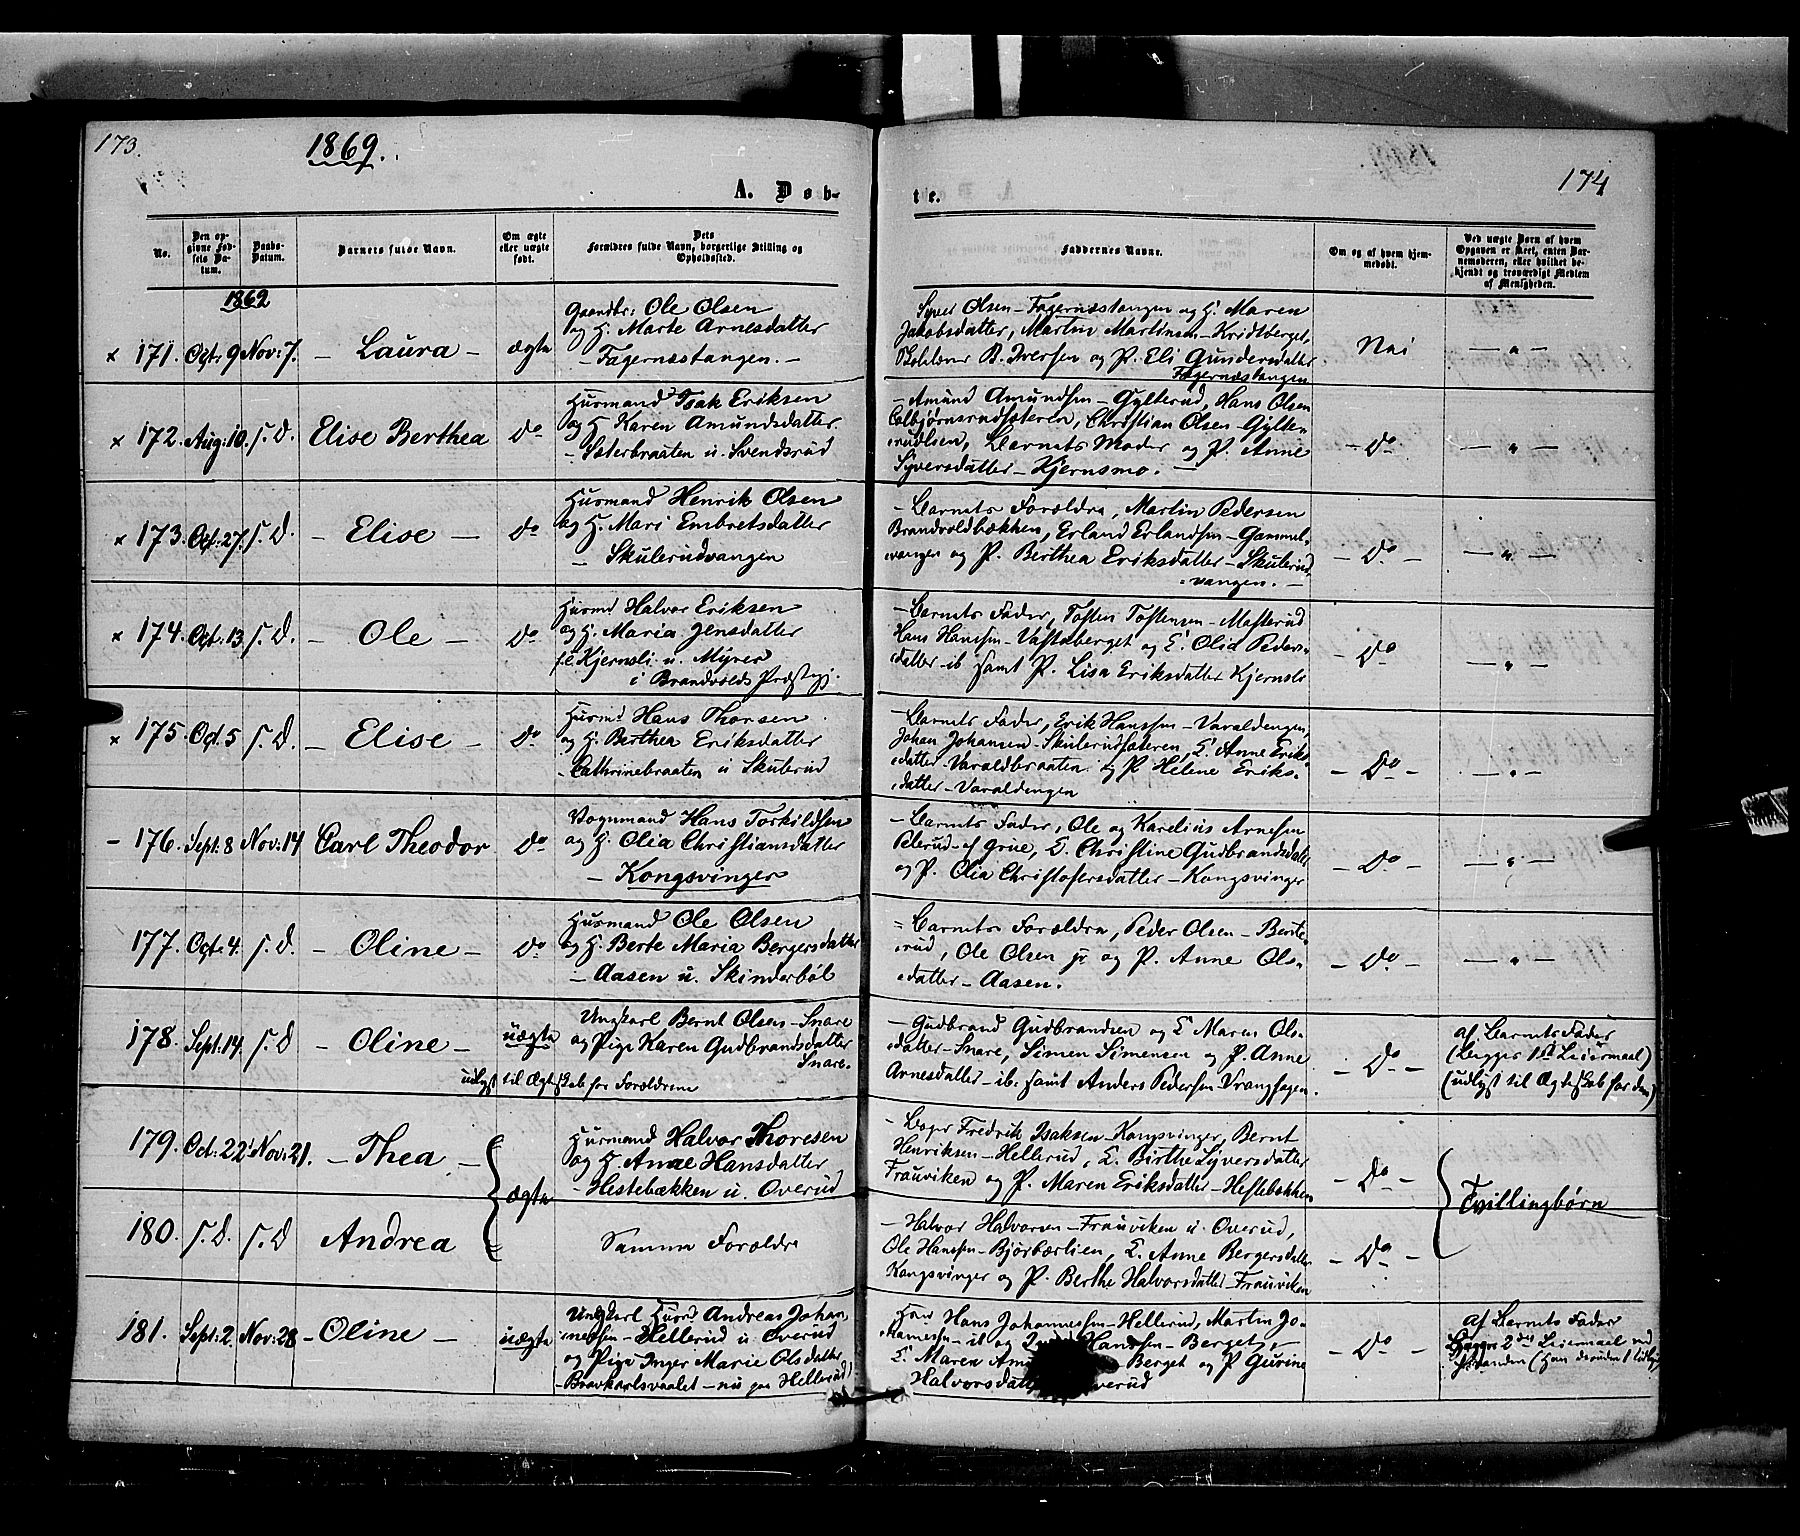 173.
1869.
174
A. Døb-
te.
No.
Den op-
givne Fød-
sels Da-
tum.
Daabs-
Datum.
Barnets fulde Navn.
Om ægte
eller uægte
født.
Dets
Forældres fulde Navn, borgerlige Stilling og
Opholdssted.
Faddernes Navne.
Om og af hvem hjem-
medøbt.
Ved uægte Børn af hvem
Opgaven er skeet, enten Bar-
nemoderen, eller hvilket be-
kjendt og troværdigt Medlem
af Menigheden.
1869
× 171. Oct: 9 Nov: 7. – Laura – ægte
Gaardbr: Ole Olsen
og H. Marte Arnesdatter
– Fagernæstangen. –
Syver Olsen – Fagernæstangen og H. Maren
Jakobsdatter, Martin Martinsen – Kridtberget,
B. Iversen og P. Eli Gundersdatter
Fagernæstangen
Nei
– " –
× 172. Aug: 10. s. D. Elise Berthea do
Husmand Isak Eriksen
og H. Karen Amundsdatter
– Sæterbraaten u. Svendsrud
– Amund Amundsen – Gylterud, Hans Olsen
Colbjørnsrudsæteren, Christian Olsen – Gylte-
rudlsen, Barnets Moder og P. Anne
Syversdatter – Kjernsmo. –
– do
– " –
× 173. Oct. 27. s. D. – Elise – do
Husmand Henrik Olsen
og H. Mari Embretsdatter
– Skulerudvangen
– Barnets Forældre, Martin Pedersen
Brandvoldbækken, Erland Erlandsen – Gammel-
vangen og P. Berthea Eriksdatter – Skulerud-
vangen. –
– do –
– " –
× 174. Oct. 13. s. D. – Ole – do
Husmd Halvor Eriksen
og H. Maria Jensdatter
Kjernsli u. Myrer
i Brandvolds Præstegj.
– Barnets Fader, Tosten Tostensen – Masterud
Hans Hansen – Vastaberget og E. Olia Peders-
datter – ib samt P. Lisa Eriksdatter Kjernsli
– do
– " –
× 175. Oct. 5 s. D. – Elise – do
Husmd Hans Thorsen
og H. Berthea Eriksdatter
– Cathrinebraaten u Skulerud
– Barnets Fader, Erik Hansen – Varaldengen,
Johan Johansen – Skulerudsæteren, E. Anne Eriks-
datter – Varaldbraaten og P. Helene Eriks-
datter – Varaldengen
– do –
– " –
– 176. Sept: 8 Nov: 14 Carl Theodor. do
Vognmand Hans Torkildsen
og H. Olia Christiansdatter
– Kongsvinger
– Barnets Fader, Ole og Karelius Arnesen
Peterud af Grue, E. Christine Gudbrandsdatter
og P. Olia Christofersdatter – Kongsvinger
– do –
– " –
177. Oct: 4. s. D. – Oline – do
Husmand Ole Olsen
og H. Berte Maria Bergersdatter
– Aasen u. Skinderbøl
– Barnets Forældre, Peder Olsen – Berte-
rud, Ole Olsen jr og P. Anne Ols-
datter – Aasen.
– do –
– " –
178. Sept: 14. s. D – Oline – uægte
Ungkarl Bernt Olsen – Snare
og Pige Karen Gudbrandsdatter
Snare.
udlyst til Ægteskab for Forældrene
– Gudbrand Gudbrandsen og E. Maren Ols-
datter – Snare, Simen Simensen og P. Anne
Arnesdatter – ib. samt Anders Pedersen Vranghagen
– do –
af Barnets Fader
(Begges 1st Leiermaal)
(udlyst til Ægteskab for dem)
179. Oct: 22 Nov: 21. – Thea –
ægte
Husmand Halvor Thoresen
og H. Anne Hansdatter
– Hestebækken u. Overud
– Fredrik Isaksen – Kongsvinger, Bernt
Henriksen – Hellerud, E. Birthe Syversdatter
Frauviken og P. Maren Eriksdatter – Hestebækken
– do –
Tvillingbørn
180. s. D. s. D Andrea
Samme Forældre
– Halvor Halvorsen – Frauviken u. Overud,
Ole Hansen – Bjørbærlien, E. Anne Bergersdatter
Kongsvinger og P. Berthe Halvorsdatter – Frauviken
– do –
181. Sept: 2. Nov: 28 – Oline – uægte
Ungkarl Husmd Andreas Johan-
nesen – Hellerud u Overud
og Pige Inger Marie Olsdatter
– nu paa Hellerud
Hans Johannesen – Hellerud, Martin Jo-
hannesen – ib og Hansen – Berget,
E. Maren – Berget og P. Gurine
Halvorsdatter Overud
– do –
af Barnets Fader
2det Leiermaal